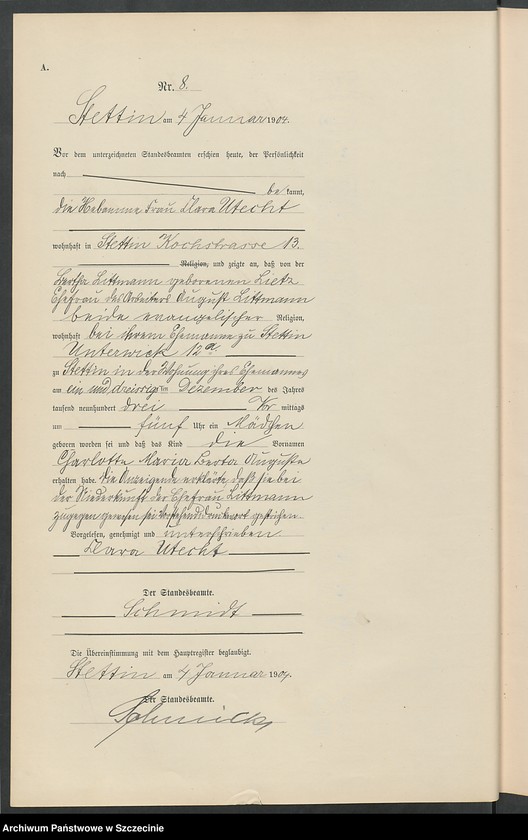 A.
Nr. 8.
Stettin am 4 Januar 1904.
Vor dem unterzeichneten Standesbeamten erschien heute, der Persönlichkeit
nach be kannt,
die Hebamme Frau Clara Utecht
wohnhaft in Stettin Kochstrasse 13.
Religion, und zeigte an, daß von der
Bertha Littmann geborenen Lietz
Ehefrau des Arbeiters August Littmann
beide evangelischer Religion,
wohnhaft bei ihrem Ehemanne zu Stettin
Unterwiek 12a
zu Stettin in der Wohnung ihres Ehemannes
am ein und dreissigsten Dezember des Jahres
tausend neunhundert drei Vor mittags
um fünf Uhr ein Mädchen
geboren worden sei und daß das Kind die Vornamen
Charlotte Maria Berta Auguste
erhalten habe. Die Anzeigende erklärte, daß sie bei
der Niederkunft der Ehefrau Littmann
zugegen gewesen sei. Vorstehend 1 Druckwort gestrichen.
Vorgelesen, genehmigt und unterschrieben
Clara Utecht
Der Standesbeamte.
Schmidt
Die Übereinstimmung mit dem Hauptregister beglaubigt.
Stettin am 4 Januar 1904.
Der Standesbeamte.
Archiwum Państwowe w Szczecinie